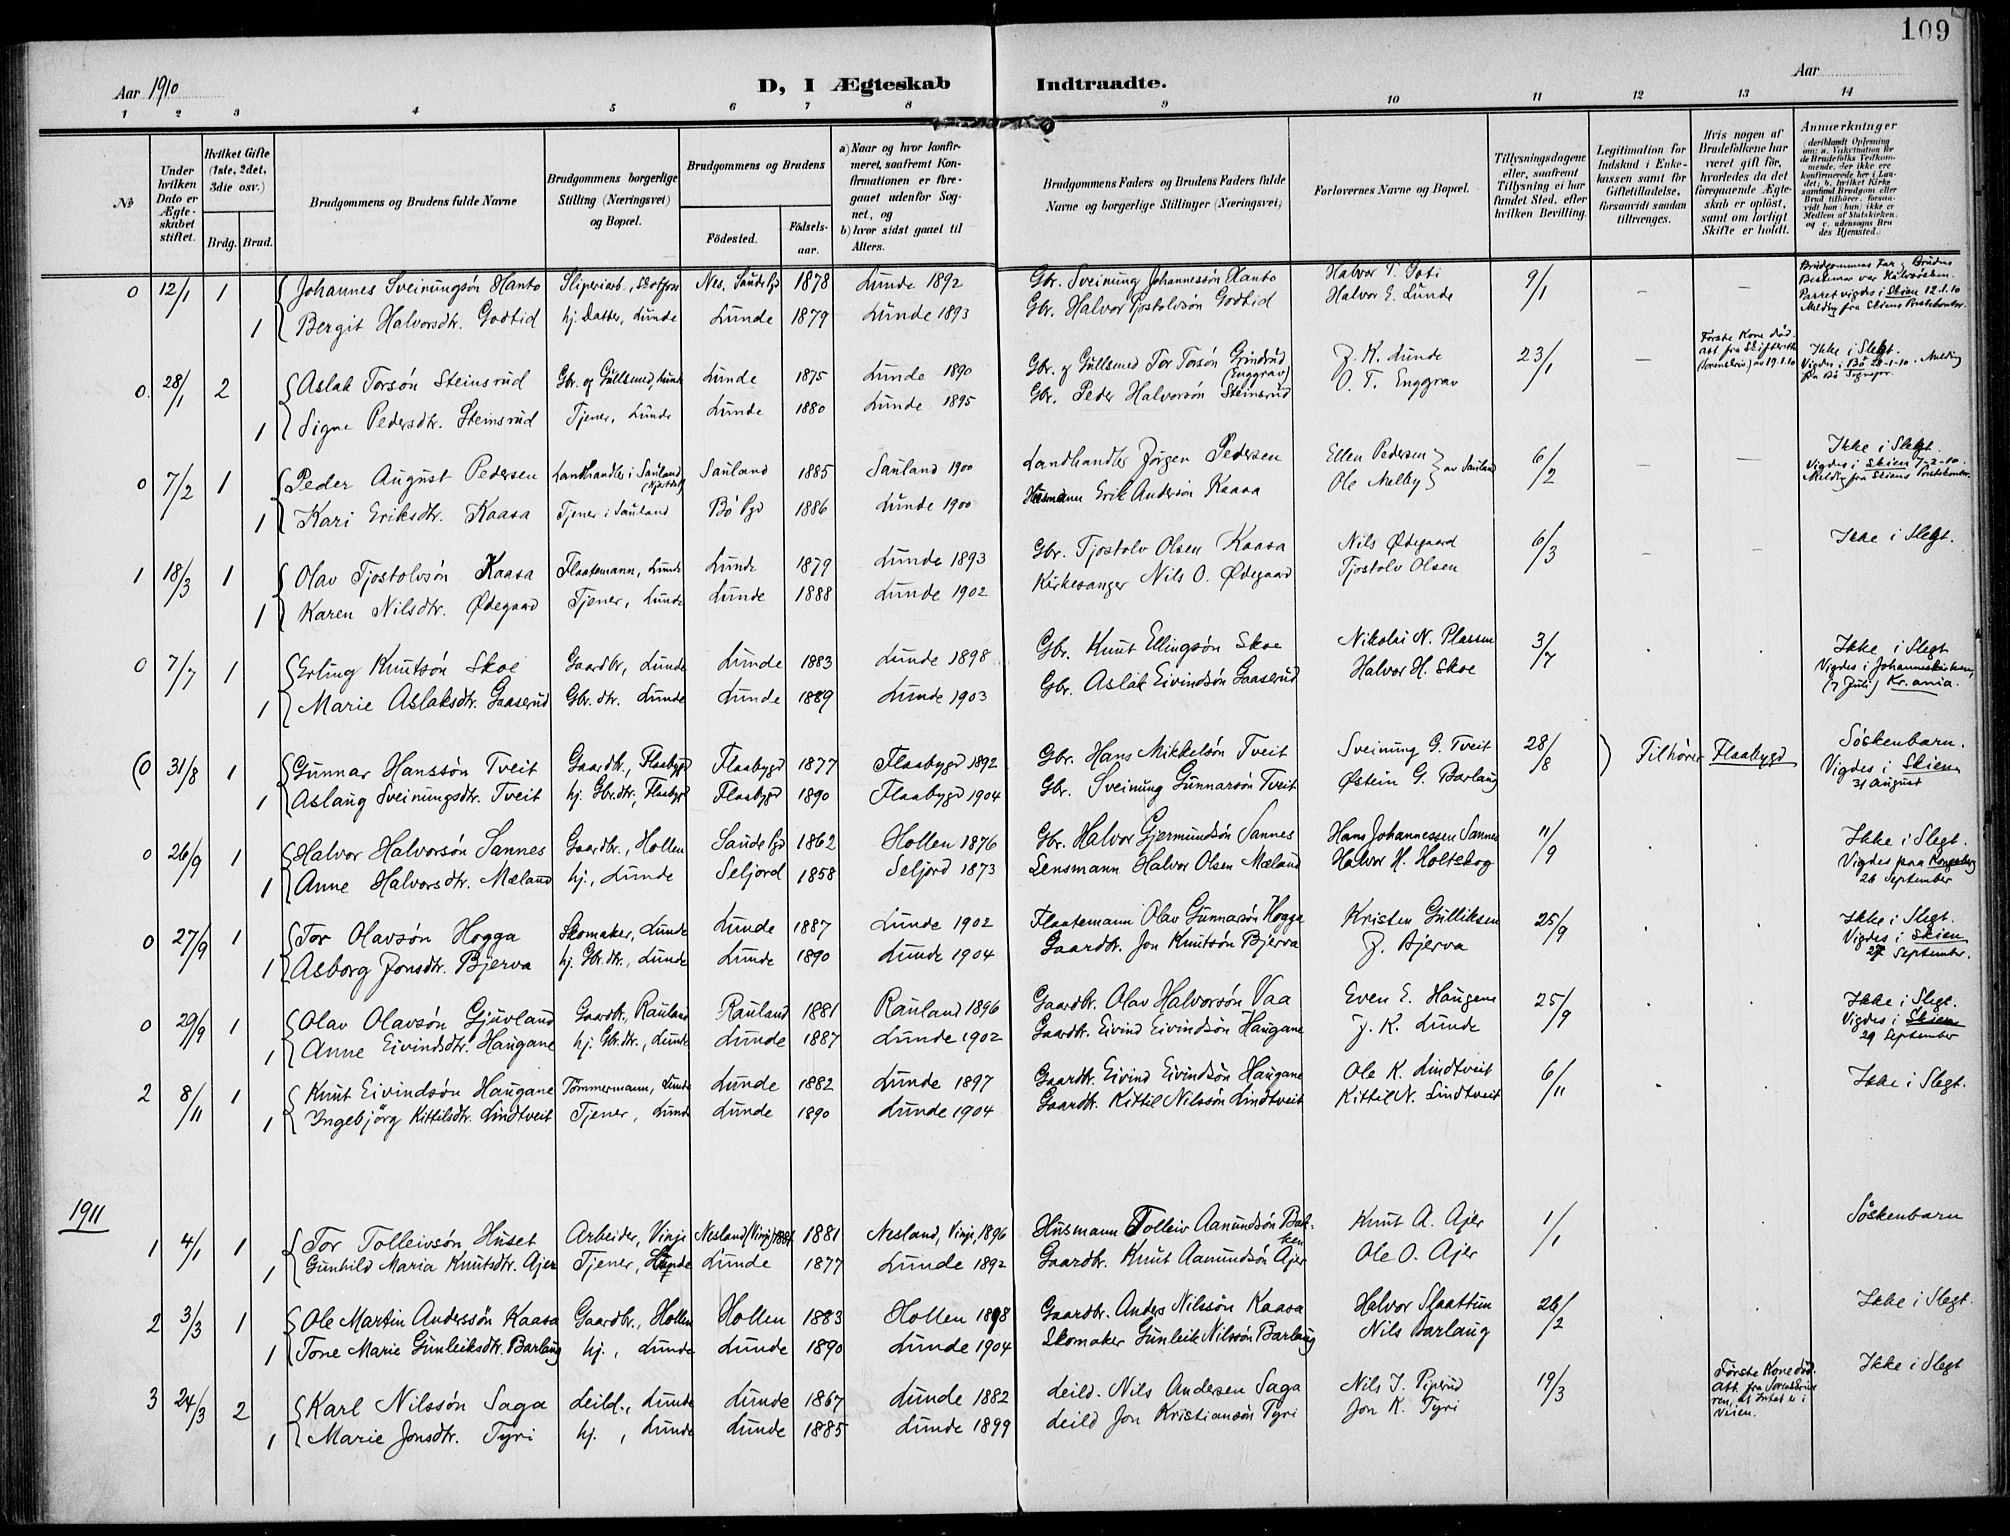 109
Aar 1910 D, I Ægteskab Indtraadte. Aar
1 2 3 4 5 6 7 8 9 10 11 12 13 14
No
Under hvilken Dato er Ægteskabet stiftet.
Hvilket Gifte (1ste, 2det, 3die osv.)
Brdg. Brud.
Brudgommens og Brudens fulde Navne
Brudgommens borgerlige Stilling (Næringsvei) og Bopæl.
Brudgommens og Brudens
Fødested. Fødselsaar.
a) Naar og hvor konfirmeret, saafremt Konfirmationen er foregaaet udenfor Sognet, og
b) hvor sidst gaaet til Alters.
Brudgommens Faders og Brudens Faders fulde Navne og borgerlige Stillinger (Næringsvei)
Forlovernes Navne og Bopæl.
Tillysningsdagene eller, saafremt Tillysning ei har fundet Sted, efter hvilken Bevilling.
Legitimation for Indskud i Enkekassen samt for Giftetilladelse, forsaavidt saadan tiltrænges.
Hvis nogen af Brudefolkene har været gift før, hvorledes da det foregaaende Ægteskab er opløst, samt om lovligt Skifte er holdt.
Anmærkninger (deriblandt Oplysning om: a. Vakcination for de Brudefolks Vedkommende, der ikke ere konfirmerede her i Landet; b. hvilket Kirkesamfund Brudgom eller Brud tilhører, forsaavidt han (hun) ikke er Medlem af Statskirken, og c. udensogns Brudes Hjemsted.)
0 12/1 1 Johannes Sveinungsøn Hanto Sliperiarb., Skotfoss Nes, Saude Pgd 1878 Lunde 1892 Gbr. Sveinung Johannessøn Hanto Halvor T. Goti 9/1 — — Brudgommens Far og Brudens Bestemor var Halvsøsken.
1 Bergit Halvorsdtr. Godtid hj. Datter, Lunde Lunde 1879 Lunde 1893 Gbr. Halvor Tjostolvsøn Godtid Halvor E. Lunde Parret vigdes i Skien 12.1.10 Melding fra Skiens Prestekontor.
0. 28/1 2 Aslak Torsøn Steinsrud Gbr. og Gullsmed, Lunde Lunde 1875 Lunde 1890 Gbr. og Gullsmed Tor Torsøn Grindrud (Enggrav) J. K. Lunde 23/1 — Første Kone død. Att. fra Skifteretten (Sorenskriv) av 19.1.10 Ikke i Slegt.
1 Signe Pedersdtr. Steinsrud Tjener, Lunde Lunde 1880 Lunde 1895 Gbr. Peder Halvorsøn Steinsrud O. T. Enggrav Vigdes i Bø 28-1-10. Melding fra Bø Sognepr.
0 7/2 1 Peder August Pedersen Landhandler i Sauland (Hjartdal) Sauland 1885 Sauland 1900 Landhandler Jørgen Pedersen Ellen Pedersen 6/2 — — Ikke i Slegt.
1 Kari Eriksdtr. Kaasa Tjener i Sauland Bø Pgd 1886 Lunde 1900 Husmann Erik Andersøn Kaasa Ole Melby av Sauland Vigdes i Skien 7-2-10. Melding fra Skiens Prestekontor.
1 18/3 1 Olav Tjostolvsøn Kaasa Flaatemann, Lunde Lunde 1879 Lunde 1893 Gbr. Tjostolv Olsen Kaasa Nils Ødegaard 6/3 — — Ikke i Slegt.
1 Karen Nilsdtr. Ødegaard Tjener, Lunde Lunde 1888 Lunde 1902 Kirkesanger Nils O. Ødegaard Tjostolv Olsen
0 7/7 1 Erling Knutsøn Skoe Gaardbr., Lunde Lunde 1883 Lunde 1898 Gbr. Knut Ellingsøn Skoe Nikolai N. Plassen 3/7 Ikke i Slegt
1 Marie Aslaksdtr. Gaaserud Gbr. dtr. Lunde Lunde 1889 Lunde 1903 Gbr. Aslak Eivindsøn Gaaserud Halvor H. Skoe Vigdes i Johanneskirken, (7 Juli) Kr.ania.
(0 31/8 1 Gunnar Hanssøn Tveit Gaardbr., Flaabygd Flaabygd 1877 Flaabygd 1892 Gbr. Hans Mikkelsøn Tveit Sveinung G. Tveit 28/8 ) Tilhører Flaabygd Søskenbarn.
1 Aslaug Sveinungsdtr. Tveit hj. Gbr.dtr., Flaabygd Flaabygd 1890 Flaabygd 1904 Gbr. Sveinung Gunnarsøn Tveit Østein G. Barlaug Vigdes i Skien 31 August
0 26/9 1 Halvor Halvorsøn Sannes Gaardbr., Hollen Saude Pgd 1862 Hollen 1876 Gbr. Halvor Gjermundsøn Sannes Hans Johannessen Sannes 11/9 Ikke i Slegt.
1 Anne Halvorsdtr. Mæland hj., Lunde Seljord 1858 Seljord 1873 Lensmann Halvor Olsen Mæland Halvor H. Holtskog Vigdes paa Kongsberg 26 September
0 27/9 1 Tor Olavsøn Hogga Skomaker, Lunde Lunde 1887 Lunde 1902 Flaatemann Olav Gunnarsøn Hogga Kristen Gulliksen 25/9 Ikke i Slegt.
1 Asborg Jonsdtr. Bjerva hj. Gbr.dtr., Lunde Lunde 1890 Lunde 1904 Gaardbr. Jon Knutsøn Bjerva J. Bjerva Vigdes i Skien 27 September.
0 29/9 1 Olav Olavsøn Gjuvland Gaardbr., Rauland Rauland 1881 Rauland 1896 Gaardbr. Olav Halvorsøn Vaa Even E. Haugene 25/9 Ikke i Slegt.
1 Anne Eivindsdtr. Haugane hj. Gbr.dtr., Lunde Lunde 1887 Lunde 1902 Gaardbr. Eivind Eivindsøn Haugane J. K. Lunde Vigdes i Skien 29 September
2 8/11 1 Knut Eivindsøn Haugane Tømmermann, Lunde Lunde 1882 Lunde 1897 Gaardbr. Eivind Eivindsøn Haugane Ole K. Lindtveit 6/11 Ikke i Slegt.
1 Ingebjørg Kittilsdtr. Lindtveit Tjener, Lunde Lunde 1890 Lunde 1904 Gaardbr. Kittil Nilssøn Lindtveit Kittil N. Lindtveit
1911
1 4/1 1 Tor Tolleivsøn Huset Arbeider, Vinje Nesland (Vinje) 1881 Nesland, Vinje, 1896 Husmann Tolleiv Aanundsøn Bakken Knut A. Ajer 1/1 Søskenbarn
1 Gunhild Maria Knutsdtr. Ajer Tjener, Lunde Lunde 1877 Lunde 1892 Gaardbr. Knut Aanundsøn Ajer Ole O. Ajer
2 3/3 1 Ole Martin Anderssøn Kaasa Gaardbr., Hollen Hollen 1883 Hollen 1898 Gaardbr. Anders Nilssøn Kaasa Halvor Slaattun 26/2 Ikke i Slegt.
1 Tone Marie Gunleiksdtr. Barlaug hj., Lunde Lunde 1890 Lunde 1904 Skomaker Gunleik Nilssøn Barlaug Nils Barlaug
3 24/3 2 Karl Nilssøn Saga Leild., Lunde Lunde 1867 Lunde 1882 Leild. Nils Andersen Saga Nils J. Piperud 19/3 Første Kone død. Att. fra Sorenskriveren, at Intet er i Veien. Ikke i Slegt
1 Marie Jonsdtr. Tyri hj., Lunde Lunde 1885 Lunde 1899 Leild Jon Kristiansøn Tyri Jon K. Tyri